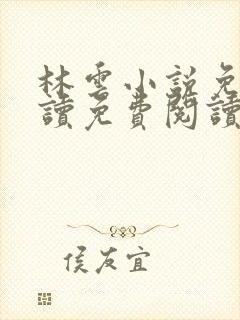 林雲小說免
讀免費閱讀
侯友宜